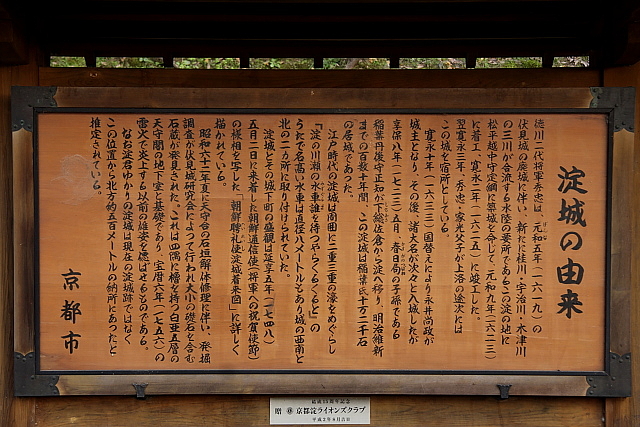 淀城の由来
徳川二代将軍秀忠は、元和五年（一六一九）の
伏見城の廃城に伴い、新たに桂川・宇治川・木津川
の三川が合流する水陸の要所であるこの淀の地に
松平越中守定綱に築城を命じて、元和九年（一六二三）
に着工、寛永二年（一六二五）に竣工した。
翌寛永三年、秀忠、家光父子が上洛の途次には
この城を宿所としている。
寛永十年（一六三三）国替えにより永井尚政が
城主となり、その後、諸大名が次々と入城したが
享保八年（一七二三）五月、春日局の子孫である
稲葉丹後守正知が下総佐倉から淀へ移り、明治維新
までの百数十年間、この淀城は稲葉氏十万二千石
の居城であった。
江戸時代の淀城は周囲に二重三重の濠をめぐらし
「淀の川瀬の水車誰を待つやらくるくると」の
うたで名高い水車は直径八メートルもあり城の西南と
北の二カ所に取り付けられていた。
淀城とその城下町の盛観は延享五年（一七四八）
五月二日に来着した朝鮮通信使（将軍への祝賀使節）
の様相を写した「朝鮮聘礼使淀城着来図」に詳しく
描かれている。
昭和六十二年夏に天守台の石垣解体修理に伴い、発掘
調査が伏見城研究会によって行われ大小の礎石を含む
石蔵が発見された。これは四隅に櫓を持つ白亜五層の
天守閣の地下室と基礎であり、宝暦六年（一七五六）の
雷火で炎上する以前の雄姿を偲ばせるものである。
なお淀君ゆかりの淀城は現在の淀城跡ではなく
この位置から北方約五百メートルの納所にあったと
推定されている。
京都市
結成25周年記念
贈 京都淀ライオンズクラブ
平成2年6月吉日